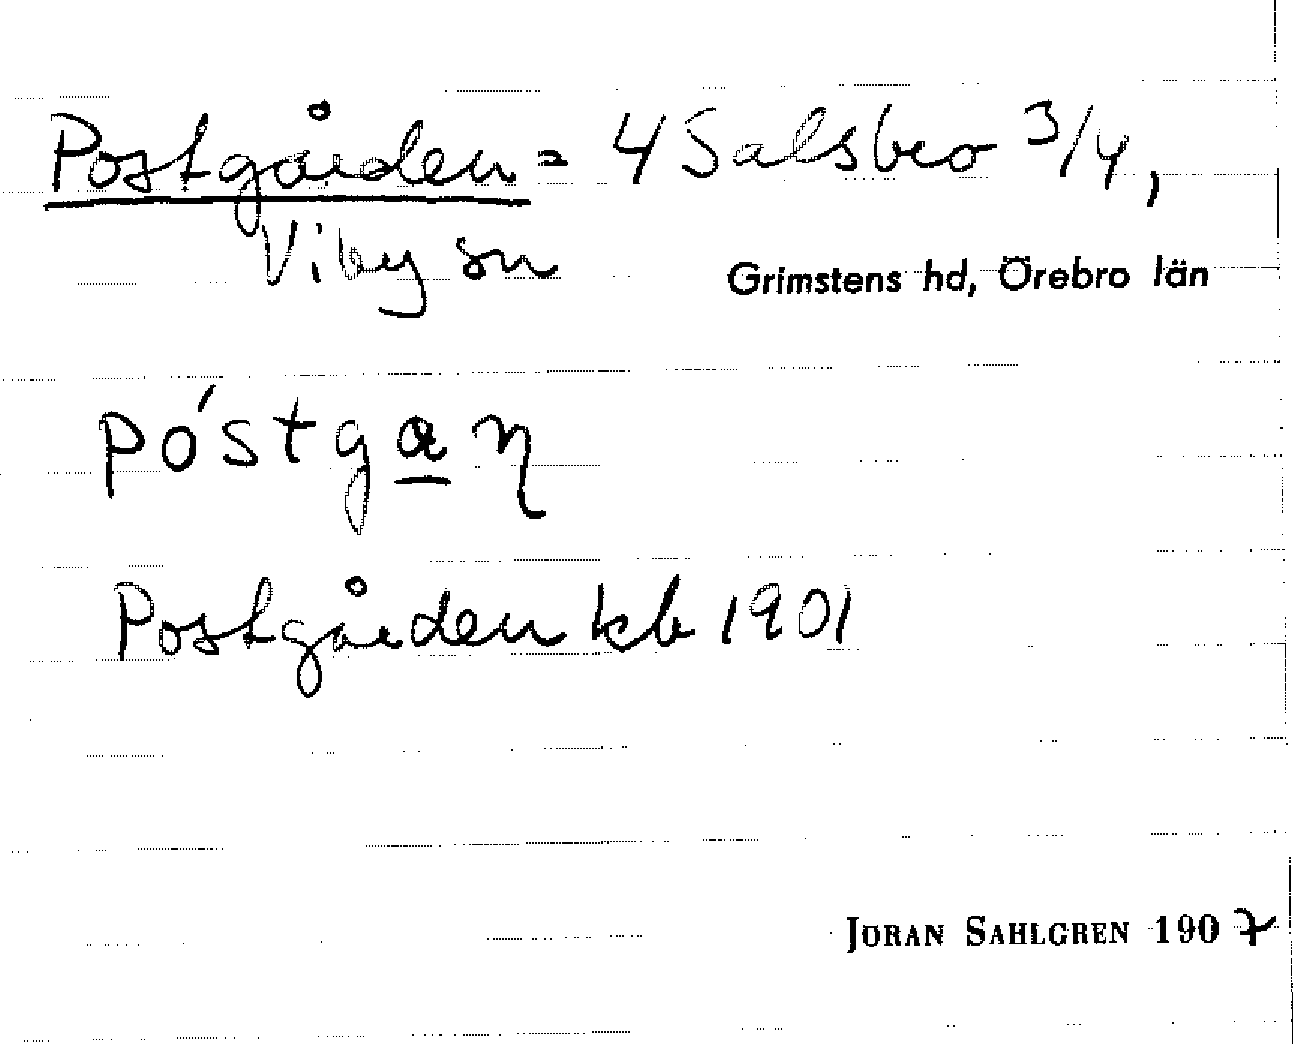 Postgården = 4 Salsbro 3/4,
Viby sn
Grimstens hd, Örebro län
póstgaη
Postgården kb 1901
JÖRAN SAHLGREN 1907